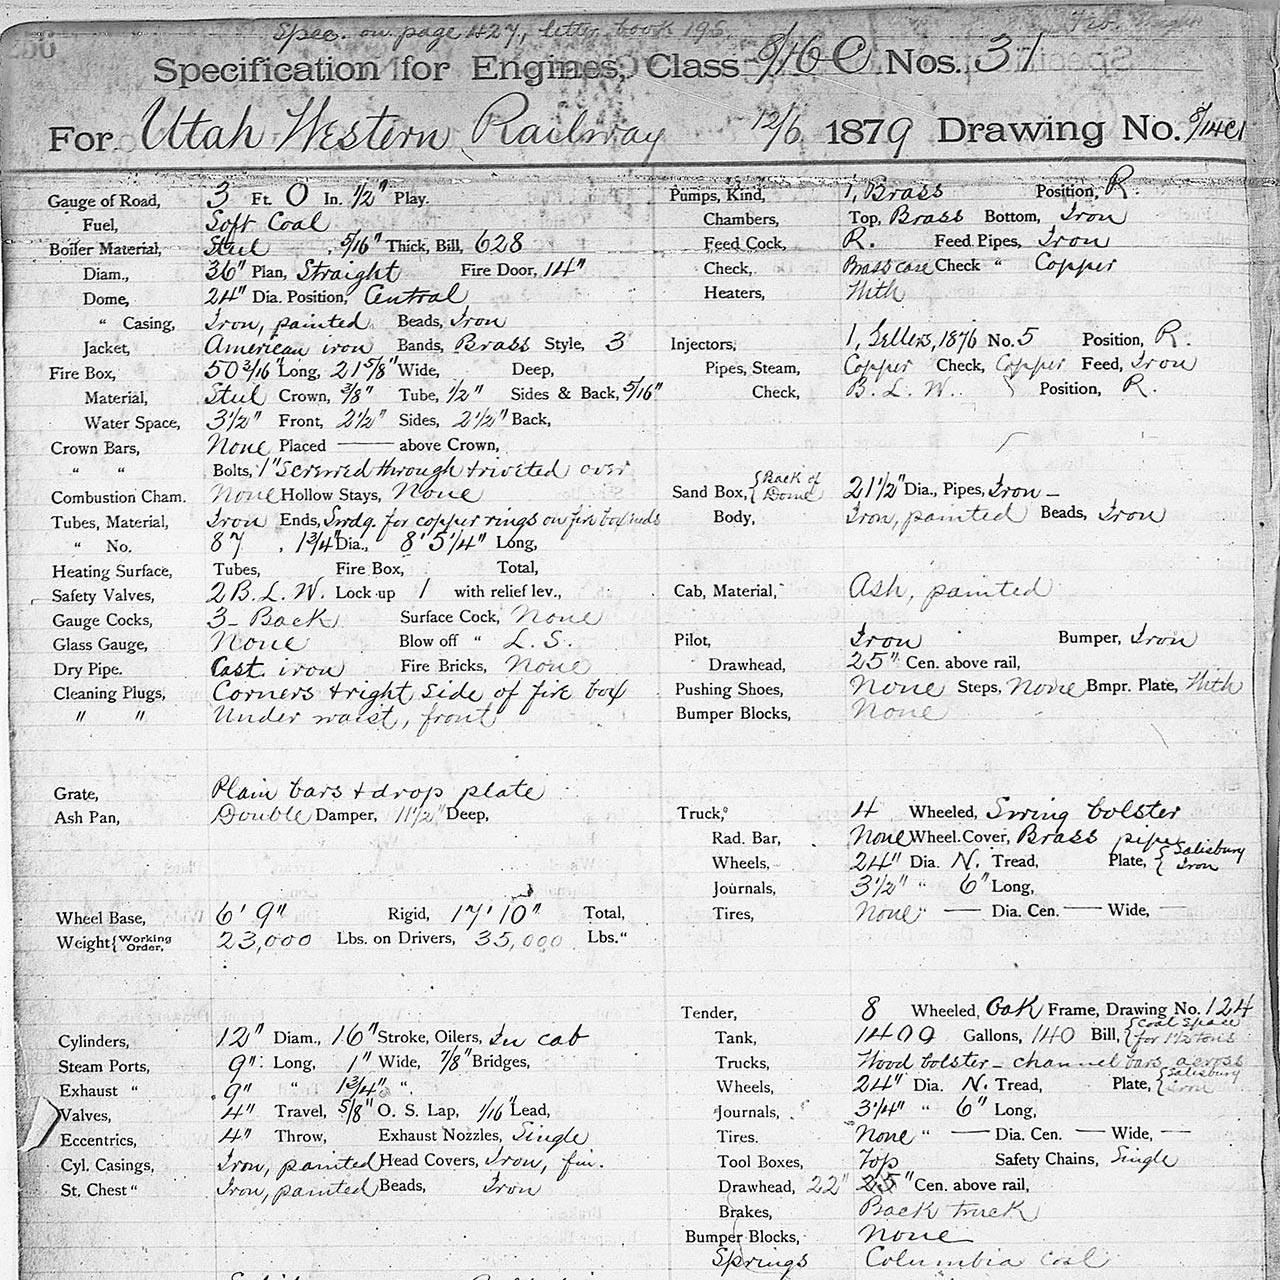 Spec. on page 427, letter book 195.
Specification for Engines, Class 8/16 C Nos. 31
For Utah Western Railway 12/6 1879 Drawing No. 8/14C1
Gauge of Road, 3 Ft. 0 In. 1/2" Play.
Fuel, Soft Coal
Boiler Material, Steel 5/16" Thick, Bill, 628
Diam., 36" Plan, Straight Fire Door, 14"
Dome, 24" Dia. Position, Central
" Casing, Iron, painted Beads, Iron
Jacket, American iron Bands, Brass Style, 3
Fire Box, 50 3/16" Long, 21 5/8" Wide, Deep,
Material, Steel Crown, 3/8" Tube, 1/2" Sides & Back, 5/16"
Water Space, 3 1/2" Front, 2 1/2" Sides, 2 1/2" Back,
Crown Bars, None Placed — above Crown,
" " Bolts, 1" Screwed through & riveted over
Combustion Cham. None Hollow Stays, None
Tubes, Material, Iron Ends, Swdg. for copper rings on fire box ends
" No. 87 , 1 3/4" Dia., 8' 5 1/4" Long,
Heating Surface, Tubes, Fire Box, Total,
Safety Valves, 2 B. L. W. Lock up 1 with relief lev.,
Gauge Cocks, 3 - Back Surface Cock, None
Glass Gauge, None Blow off " L. S.
Dry Pipe. Cast iron Fire Bricks, None
Cleaning Plugs, Corners & right side of fire box
" " Under waist, front
Grate, Plain bars & drop plate
Ash Pan, Double Damper, 11 1/2" Deep,
Wheel Base, 6' 9" Rigid, 17' 10" Total,
Weight { Working Order, 23,000 Lbs. on Drivers, 35,000 Lbs. "
Cylinders, 12" Diam., 16" Stroke, Oilers, In cab
Steam Ports, 9" Long, 1" Wide, 7/8" Bridges,
Exhaust " 9" " 1 3/4" "
Valves, 4" Travel, 5/8" O. S. Lap, 1/16" Lead,
Eccentrics, 4" Throw, Exhaust Nozzles, Single
Cyl. Casings, Iron, painted Head Covers, Iron, fin.
St. Chest " Iron, painted Beads, Iron
Pumps, Kind, 1, Brass Position, R.
Chambers, Top, Brass Bottom, Iron
Feed Cock, R. Feed Pipes, Iron
Check, Brass case Check " Copper
Heaters, With
Injectors, 1, Sellers, 1876 No. 5 Position, R.
Pipes, Steam, Copper Check, Copper Feed, Iron
Check, B. L. W. Position, R.
Sand Box, { Back of Dome } 21 1/2" Dia., Pipes, Iron -
Body, Iron, painted Beads, Iron
Cab, Material, Ash, painted
Pilot, Iron Bumper, Iron
Drawhead, 25" Cen. above rail,
Pushing Shoes, None Steps, None Bmpr. Plate, With
Bumper Blocks, None
Truck, 4 Wheeled, Swing bolster
Rad. Bar, None Wheel. Cover, Brass pipe
Wheels, 24" Dia. N. Tread, Plate, { Salisbury Iron
Journals, 3 1/2" " 6" Long,
Tires, None " — Dia. Cen. — Wide, —
Tender, 8 Wheeled, Oak Frame, Drawing No. 124
Tank, 1400 Gallons, 140 Bill, { coal space for 1 1/2 tons
Trucks, Wood bolster - channel bars across
Wheels, 24" Dia. N. Tread, Plate, { Salisbury Iron
Journals, 3 1/4" " 6" Long,
Tires. None " — Dia. Cen. — Wide, —
Tool Boxes, Top Safety Chains, Single
Drawhead, 22" 25" Cen. above rail,
Brakes, Back truck
Bumper Blocks, None
Springs Columbia coil